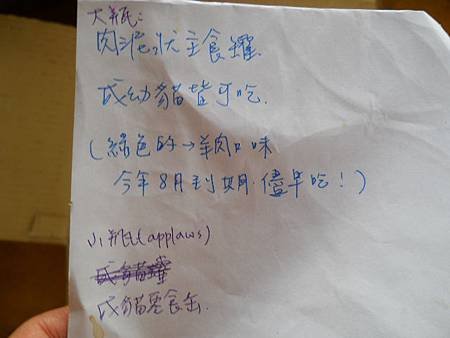 大瓶:
肉泥狀主食罐
成幼貓皆可吃.
(綠色的→羊肉口味
今年8月到期.儘早吃!)
小瓶(applaws)
成貓零食缶.